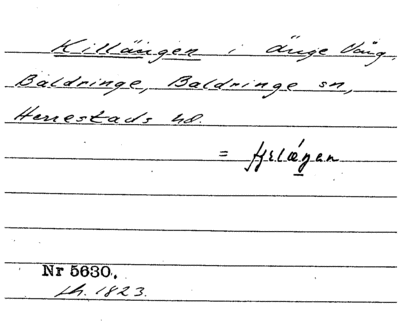 Killängen i Änge Vång,
Baldringe, Baldringe sn,
Herrestads hd.
=
Nr 5630.
1823.